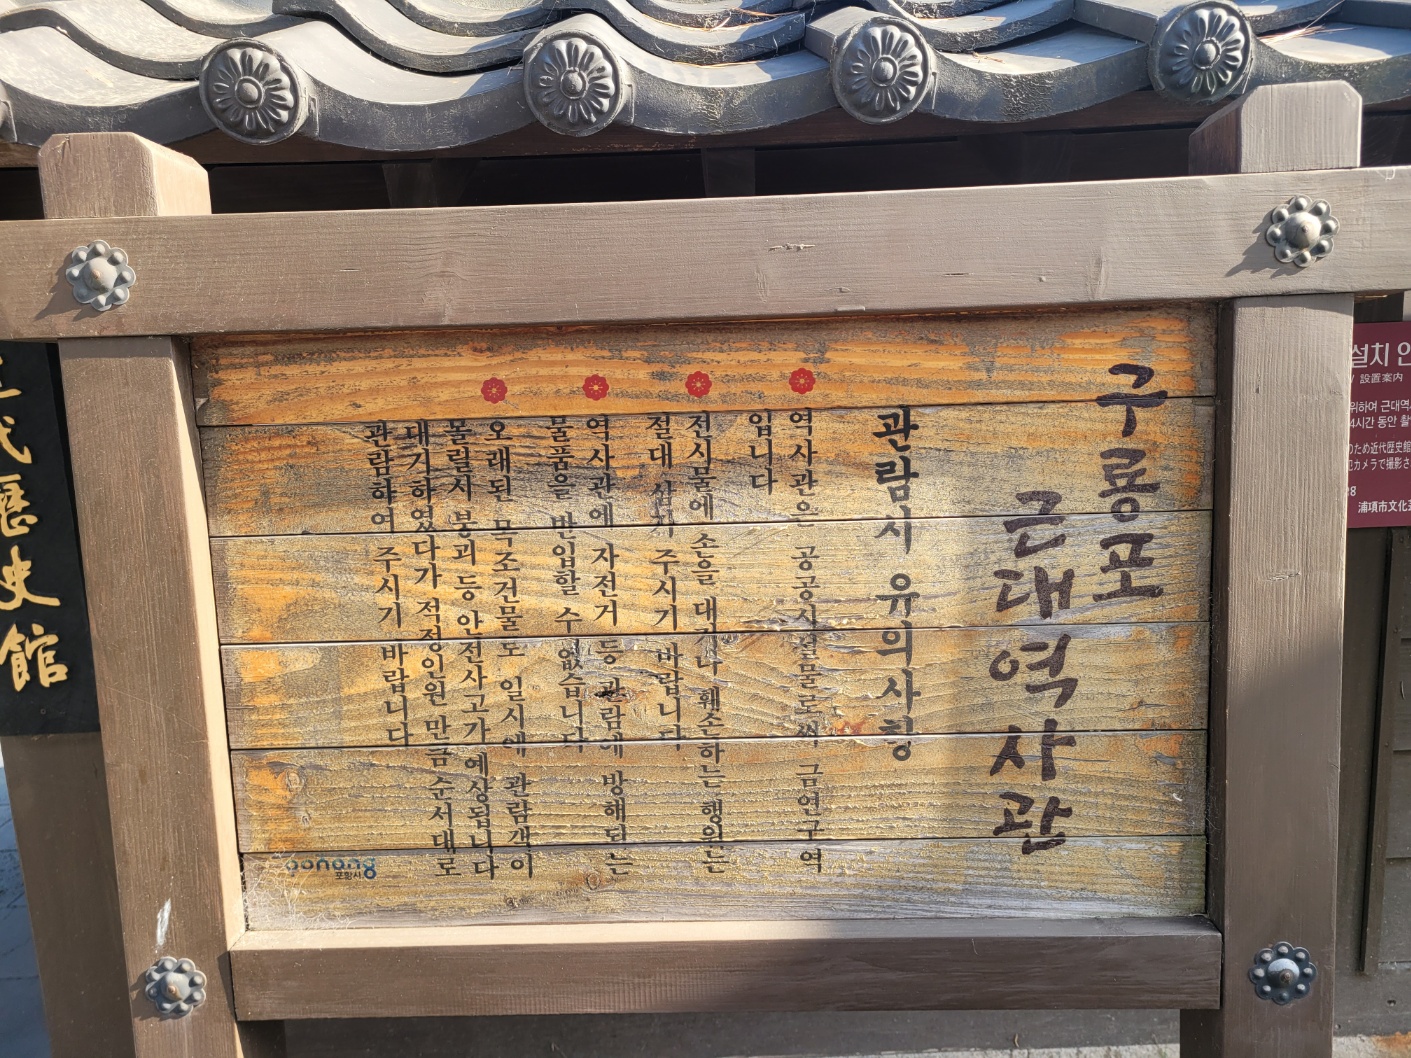 구룡포
근대역사관
관람시 유의사항
역사관은 공공시설물로써 금연구역
입니다
전시물에 손을 대거나 훼손하는 행위는
절대 삼가 주시기 바랍니다
역사관에 자전거 등 관람에 방해되는
물품을 반입할 수 없습니다
오래된 목조건물로 일시에 관람객이
몰릴시 붕괴 등 안전사고가 예상됩니다
대기하였다가 적정인원 만큼 순서대로
관람하여 주시기 바랍니다
pohang
포항시
代歷史館
설치 안
設置案内
위하여 근대역
4시간 동안 촬
のため近代歴史館
カメラで撮影さ
浦項市文化